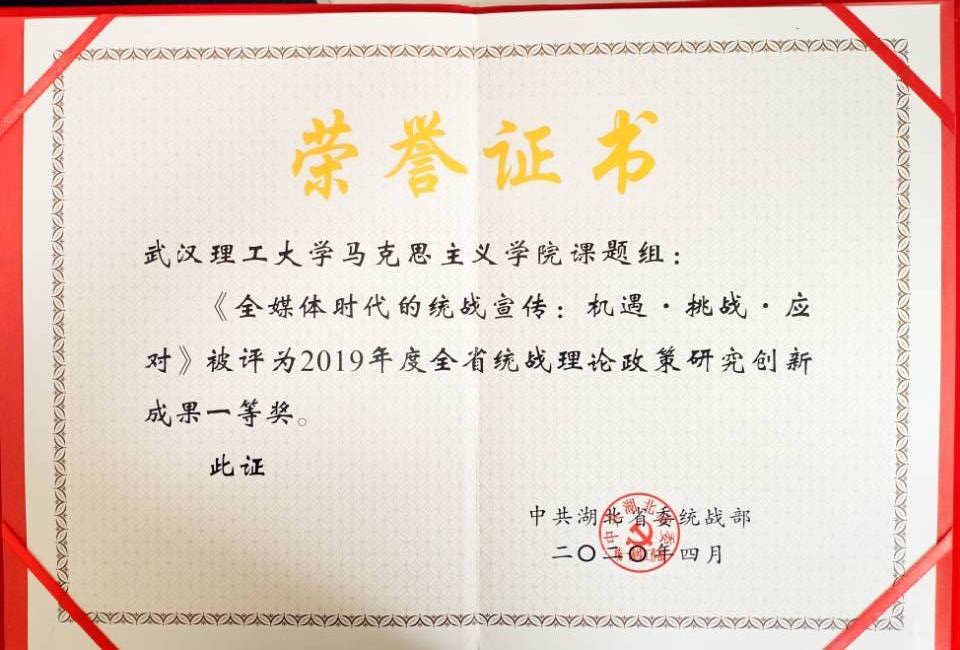 荣誉证书
武汉理工大学马克思主义学院课题组：
《全媒体时代的统战宣传：机遇·挑战·应
对》被评为2019年度全省统战理论政策研究创新
成果一等奖。
此证
中共湖北省委统战部
二〇二〇年四月